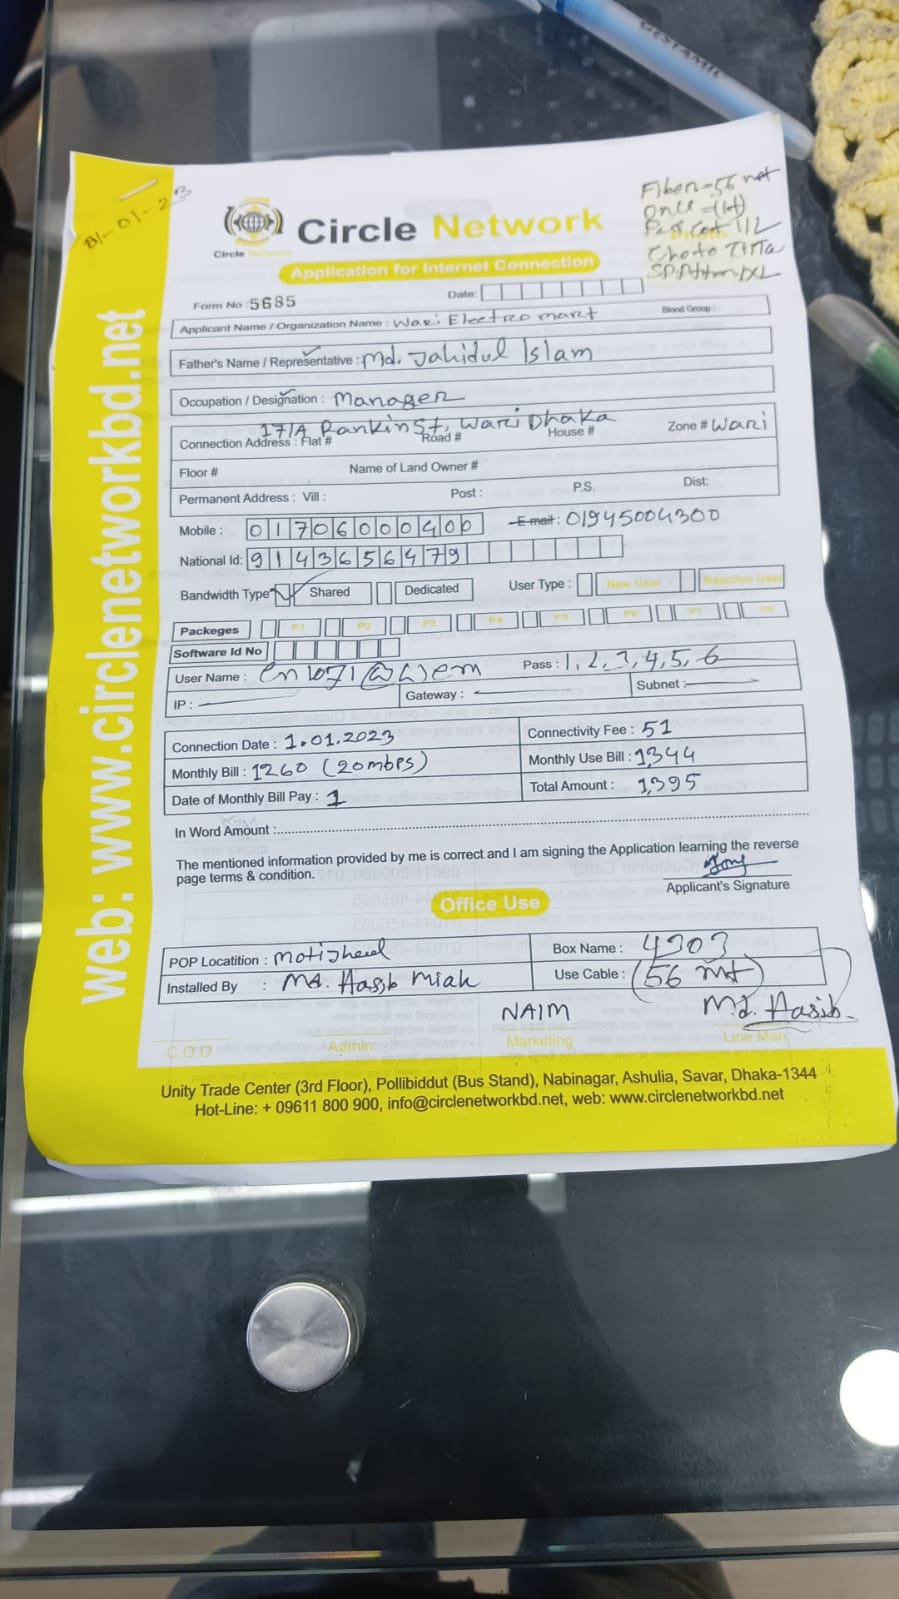 01-01-23
Fiber=56 mt
Onu =(1t)
Circle Network
Circle Network
Application for Internet Connection
Form No :5685
Date:
Applicant Name / Organization Name : Wari Electro mart
Blood Group :
Father's Name / Representative : Md. Jahidul Islam
Occupation / Designation : Manager
17/A Rankin St, Wari Dhaka
Connection Address : Flat # Road # House # Zone # Wari
Floor # Name of Land Owner #
Permanent Address : Vill : Post : P.S. Dist:
Mobile : 01706000400 E-mail : 01945004300
National Id: 9143656479
Bandwidth Type Shared Dedicated User Type : New User Reactive User
Packeges P1 P2 P3 P4 P5 P6 P7 P8
Software Id No
User Name : Pass : 1,2,3,4,5,6
IP : Gateway : Subnet :
Connection Date : 1.01.2023 Connectivity Fee : 51
Monthly Bill : 1260 (20mbps) Monthly Use Bill : 1344
Date of Monthly Bill Pay : 1 Total Amount : 1,395
In Word Amount :
The mentioned information provided by me is correct and I am signing the Application learning the reverse
page terms & condition.
Applicant's Signature
Office Use
POP Locatition : Motijheel Box Name : 4303
Installed By : Md. Hasib Miah Use Cable : (56 mt)
NAIM Md. Hasib
C.O.O Admin Marketing Line Man
Unity Trade Center (3rd Floor), Pollibiddut (Bus Stand), Nabinagar, Ashulia, Savar, Dhaka-1344
Hot-Line: + 09611 800 900, info@circlenetworkbd.net, web: www.circlenetworkbd.net
web: www.circlenetworkbd.net